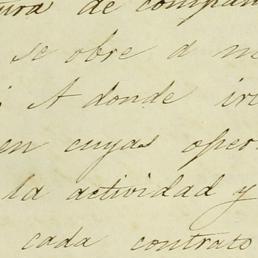 tura de compañ
se obre a m
A donde ir
en cuyas oper
la actividad y
cada contrato